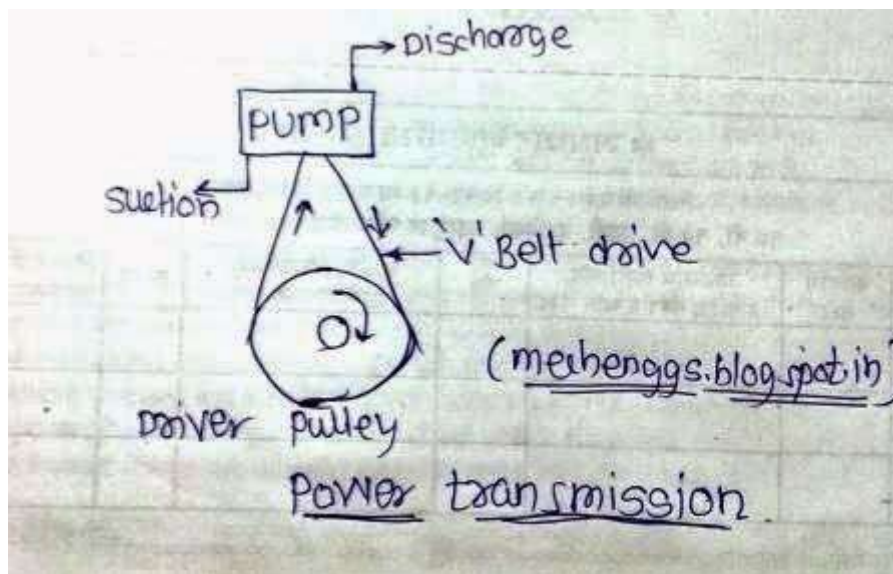 Discharge
PUMP
suction
'V' Belt drive
(mechenggs.blogspot.in)
Driver pulley
Power transmission.